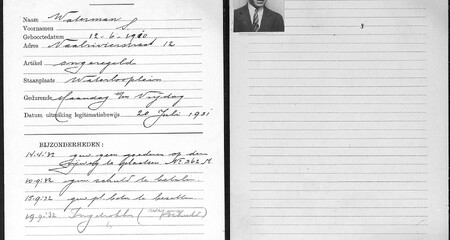 Naam Waterman S
Voornamen
Geboortedatum 12-6-1910
Adres Vaalrivierstraat 12
Artikel ongeregeld
Staanplaats Waterlooplein
Gedurende Maandag t/m Vrijdag
Datum uitreiking legitimatiebewijs 20 Juli 1931
BIJZONDERHEDEN:
14.4.'32 gew. geen goederen op den
rijweg te plaatsen No 362 M
10.9.'32 gew. schuld te betalen
15.9.'32 gew. pl. beter te bezetten
29.9.'32 Ingetrokken (wegens schuld)